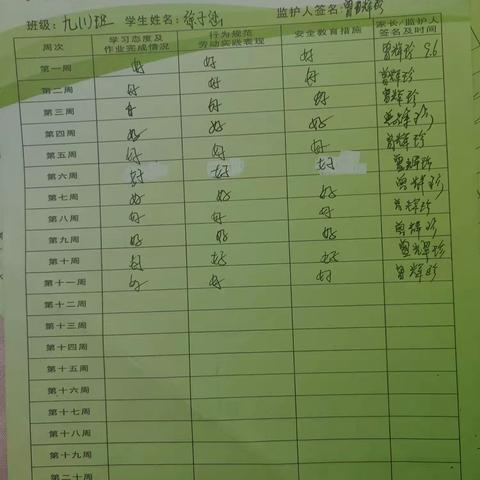 班级:九(1)班 学生姓名:徐子涵 监护人签名:曾辉珍
周次 学习态度及作业完成情况 行为规范劳动实践表现 安全教育措施 家长/监护人签名及时间
第一周 好 好 好 曾辉珍 9.6
第二周 好 好 好 曾辉珍
第三周 好 好 好 曾辉珍
第四周 好 好 好 曾辉珍
第五周 好 好 好 曾辉珍
第六周 好 好 好 曾辉珍
第七周 好 好 好 曾辉珍
第八周 好 好 好 曾辉珍
第九周 好 好 好 曾辉珍
第十周 好 好 好 曾辉珍
第十一周 好 好 好 曾辉珍
第十二周
第十三周
第十四周
第十五周
第十六周
第十七周
第十八周
第十九周
第二十周